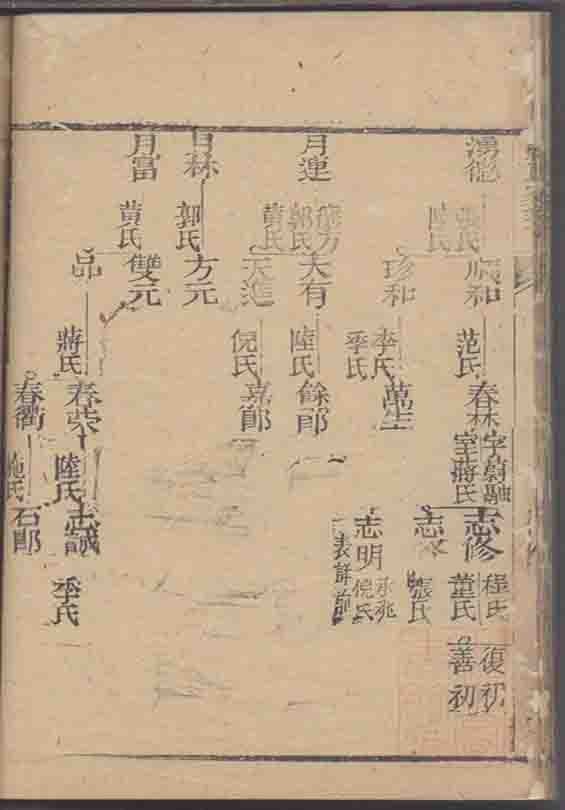 月連
月林
月富
張氏
陸氏
熊方
郭氏
黄氏
郭氏
黄氏
順和
珍和
天有
天進
方元
雙元
品
范氏
李氏
季氏
陸氏
倪氏
蔣氏
春林
字蔚融
室蔣氏
萬生
餘郎
嘉郎
春榮
春衢
陸氏
施氏
志修
志
志明
志誠
石郎
程氏
董氏
張氏
永兆
倪氏
表詳前
季氏
復初
善初